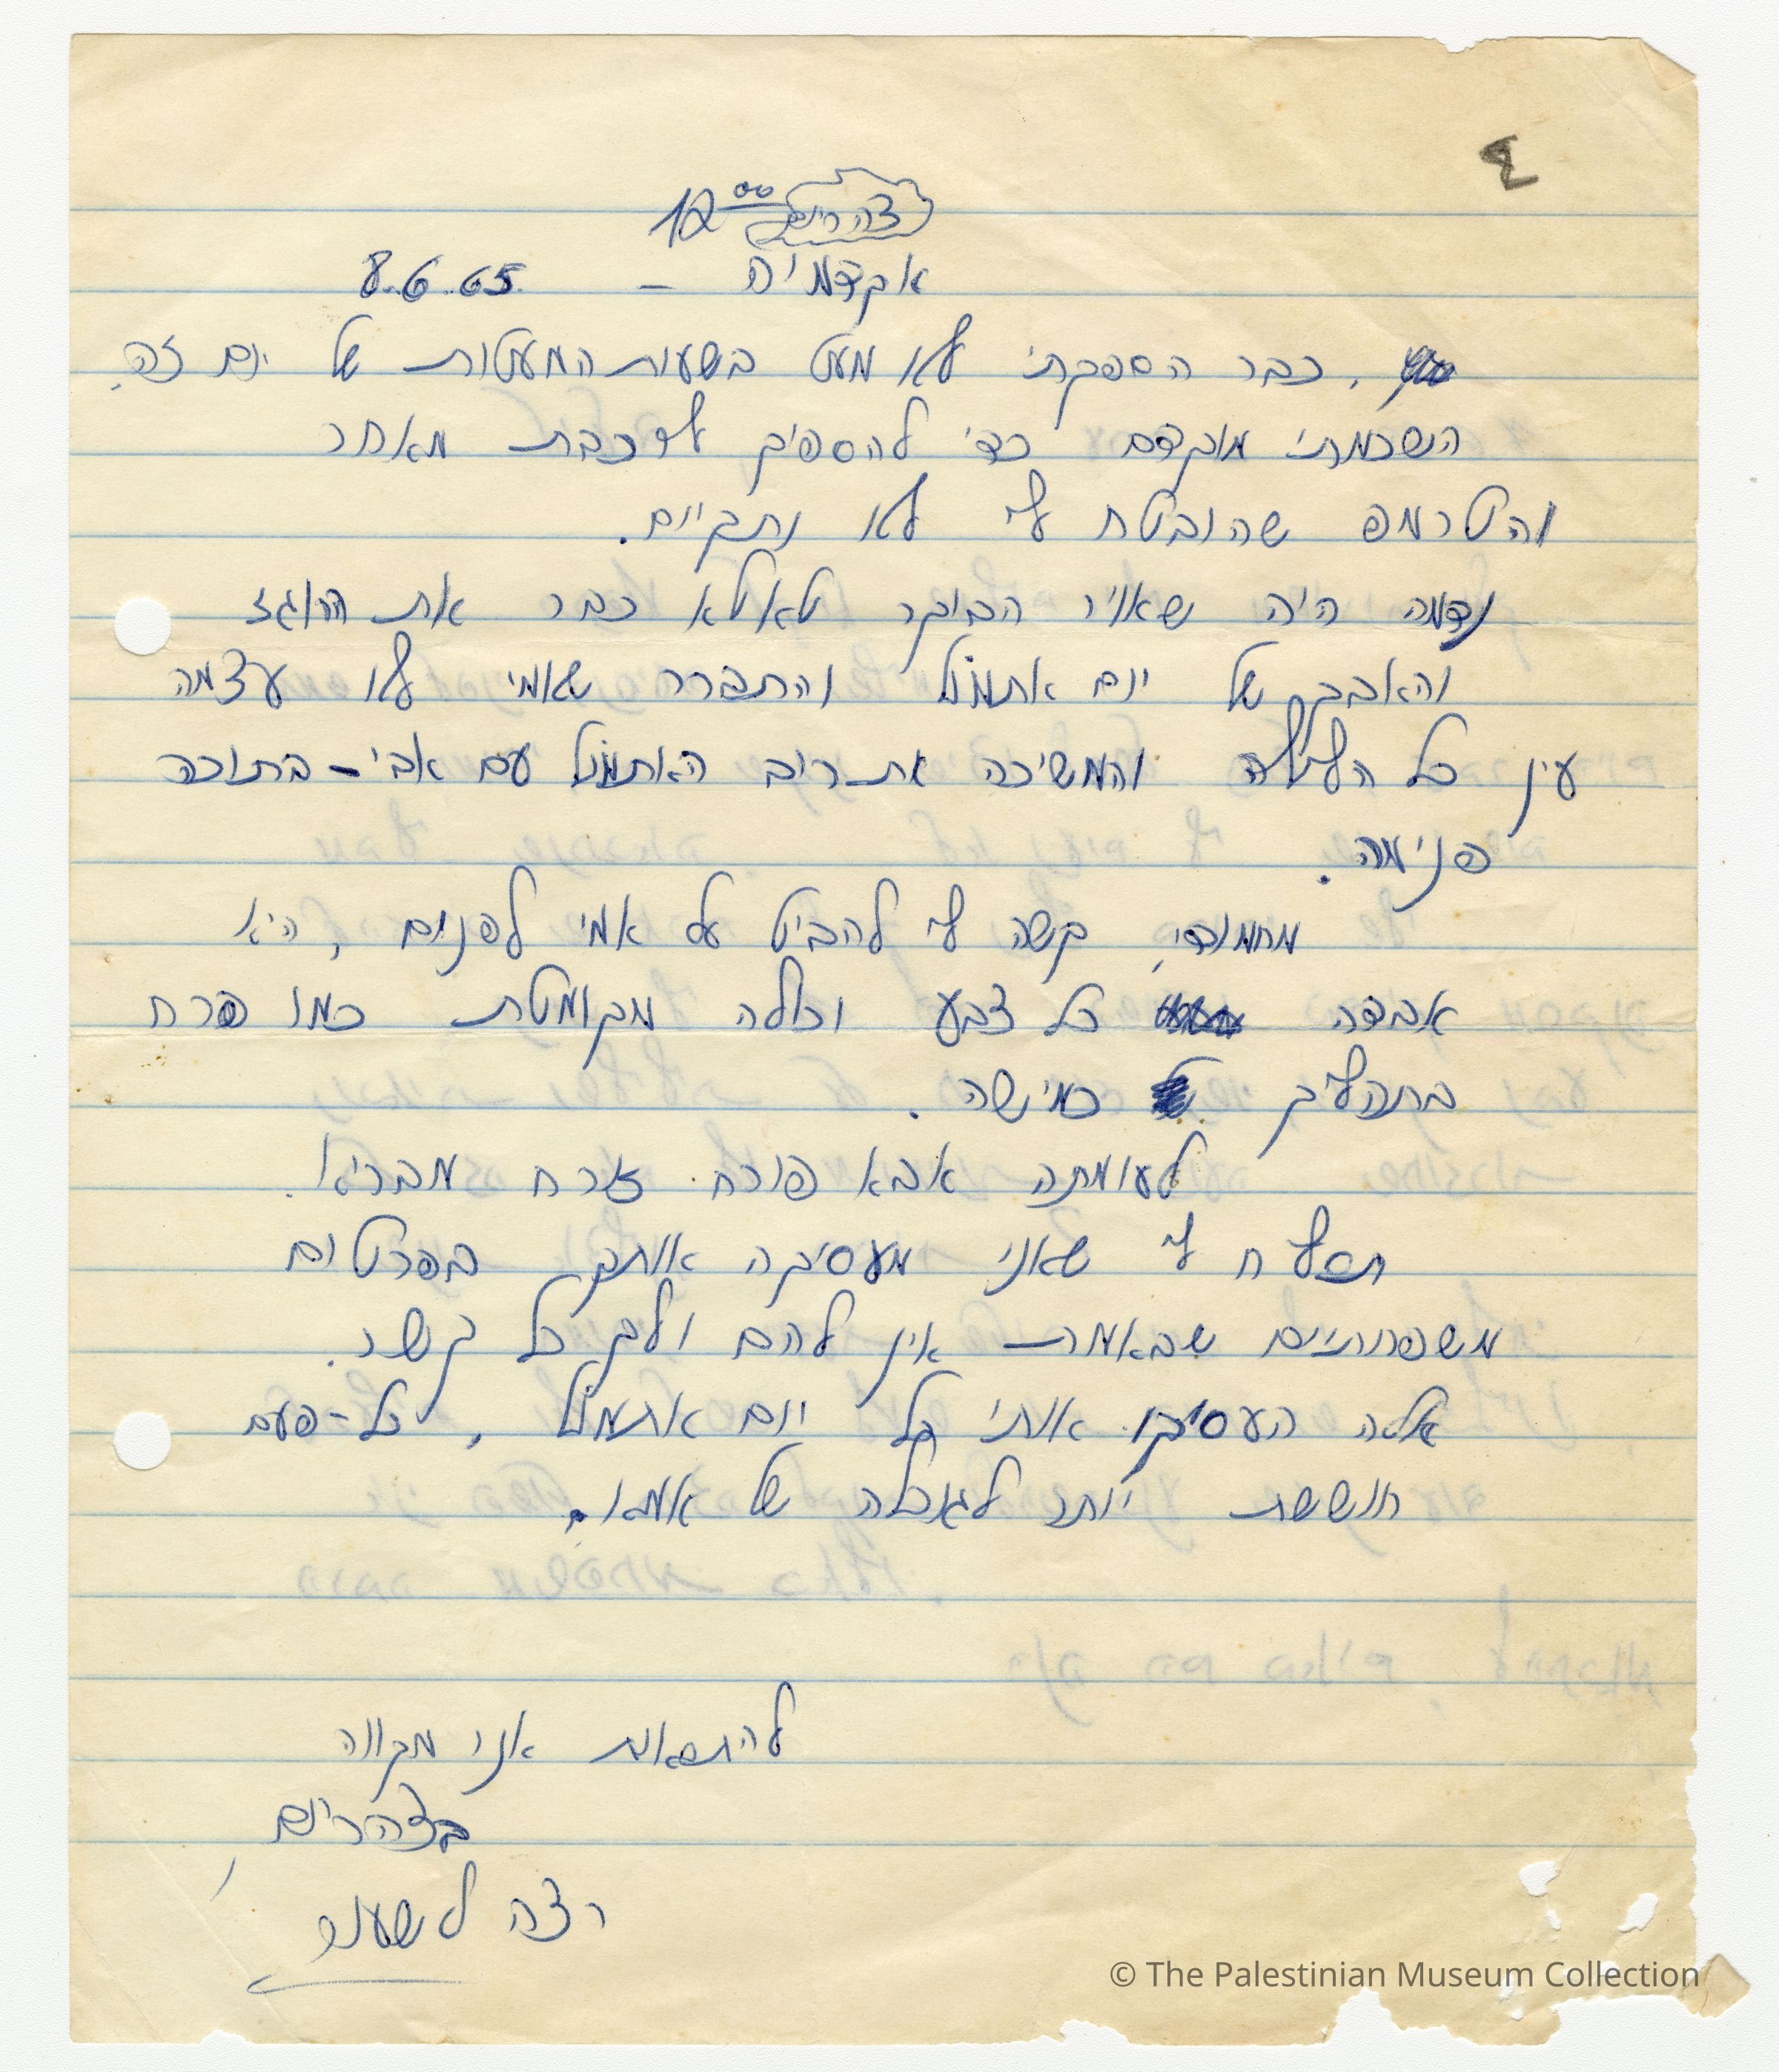 4
צהריים 12⁰⁰
אקדמיה – 8.6.65
כבר הספקתי לא מעט בשעות המעטות של יום זה.
השכמתי מוקדם כדי להספיק לרכבת מאחר
והטרמפ שהובטח לי לא נתקיים.
נדמה היה שאויר הבוקר טאטא כבר את הרוגז
והאבק של יום אתמול והתברר שאמי לא עצמה
עין כל הלילה והמשיכה את ריב האתמול עם אבי – בתוכה
פנימה.
מחמודי, קשה לי להביט על אמי לפנים, היא
אבדה כל צבע וכולה מקומטת כמו פרח
בתהליך כמישה.
לעומתה אבא פורח זורח מבריא.
תסלח לי שאני מעסיקה אותך בפרטים
משפחתיים שבאמת אין להם ולך כל קשר.
אלה העסיקו אותי כל יום אתמול, כל-פעם
חוששת יותר לגורלה של אמא.
להתראות אני מקווה
בצהריים